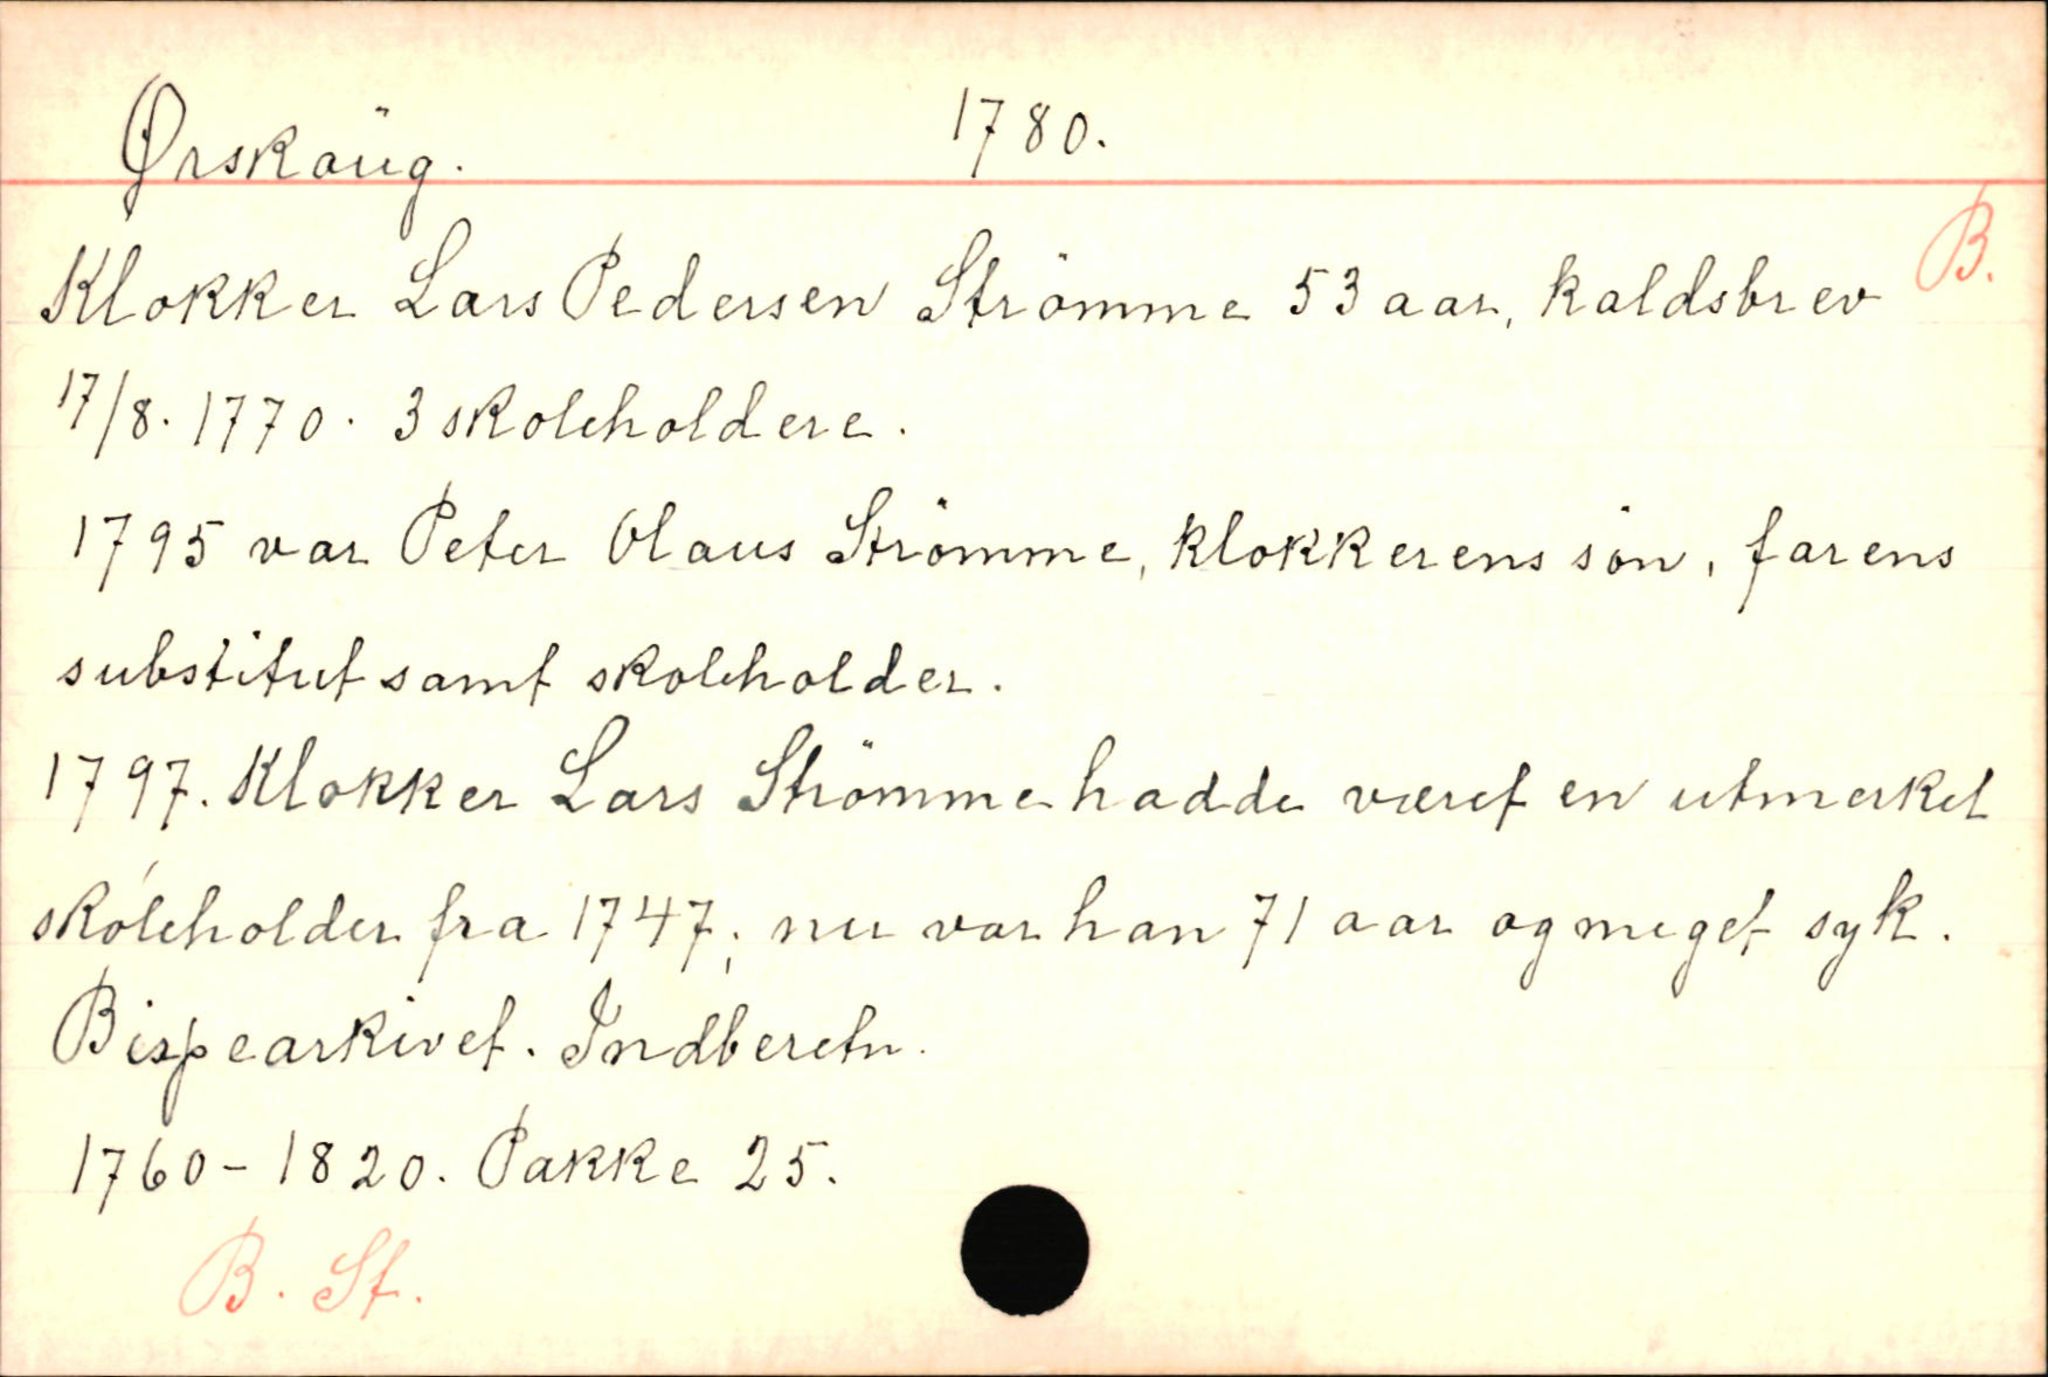 Ørskaug. 1780.
B.
Klokker Lars Pedersen Strömme 53 aar, kaldsbrev
17/8. 1770. 3 skoleholdere.
1795 var Peter Olaus Strömme, klokkerens sön, farens
substitut samt skoleholder.
1797. Klokker Lars Strömme hadde været en utmerket
skoleholder fra 1747; nu var han 71 aar og meget syk.
Bispearkivet. Indberetn.
1760-1820. Pakke 25.
B. St.